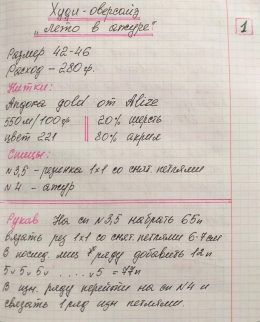 Худи-оверсайз
"Лето в ажуре"
1
Размер 42-46
Расход - 280 гр.
Нитки:
Ангора gold от Alize
550м/100гр 20% шерсть
цвет 221 80% акрил
Спицы:
№3,5 - резинка 1х1 со снят. петлями
№4 - ажур
Рукав На сп №3,5 набрать 65п
вязать рез 1х1 со снят. петлями 6-7см
В послед. лиц ряду добавить 12п
5 v 5 v 5 v ..... v 5 = 77п
В изн. ряду перейти на сп №4 и
связать 1 ряд изн петлями.